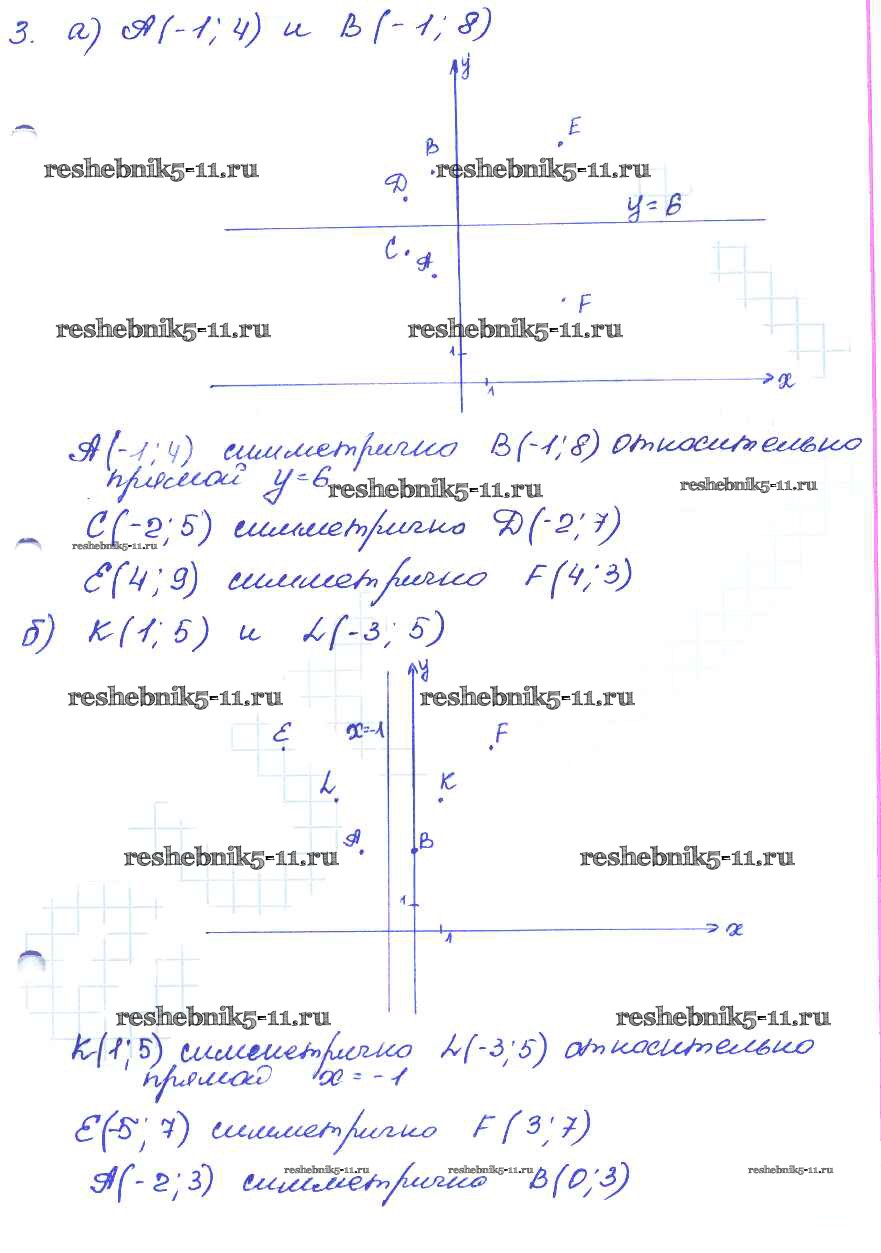 3. а) A(-1; 4) и B(-1; 8)
y
E
B
reshebnik5-11.ru reshebnik5-11.ru
D
y=6
C
A
F
reshebnik5-11.ru reshebnik5-11.ru
1
x
1
A(-1; 4) симметрично B(-1; 8) относительно
прямой y=6
reshebnik5-11.ru reshebnik5-11.ru
C(-2; 5) симметрично D(-2; 7)
reshebnik5-11.ru
E(4; 9) симметрично F(4; 3)
б) K(1; 5) и L(-3; 5)
y
reshebnik5-11.ru reshebnik5-11.ru
E x=-1 F
L K
A B
reshebnik5-11.ru reshebnik5-11.ru
1
x
1
reshebnik5-11.ru reshebnik5-11.ru
K(1; 5) симметрично L(-3; 5) относительно
прямой x = -1
E(-5; 7) симметрично F(3; 7)
reshebnik5-11.ru reshebnik5-11.ru reshebnik5-11.ru
A(-2; 3) симметрично B(0; 3)